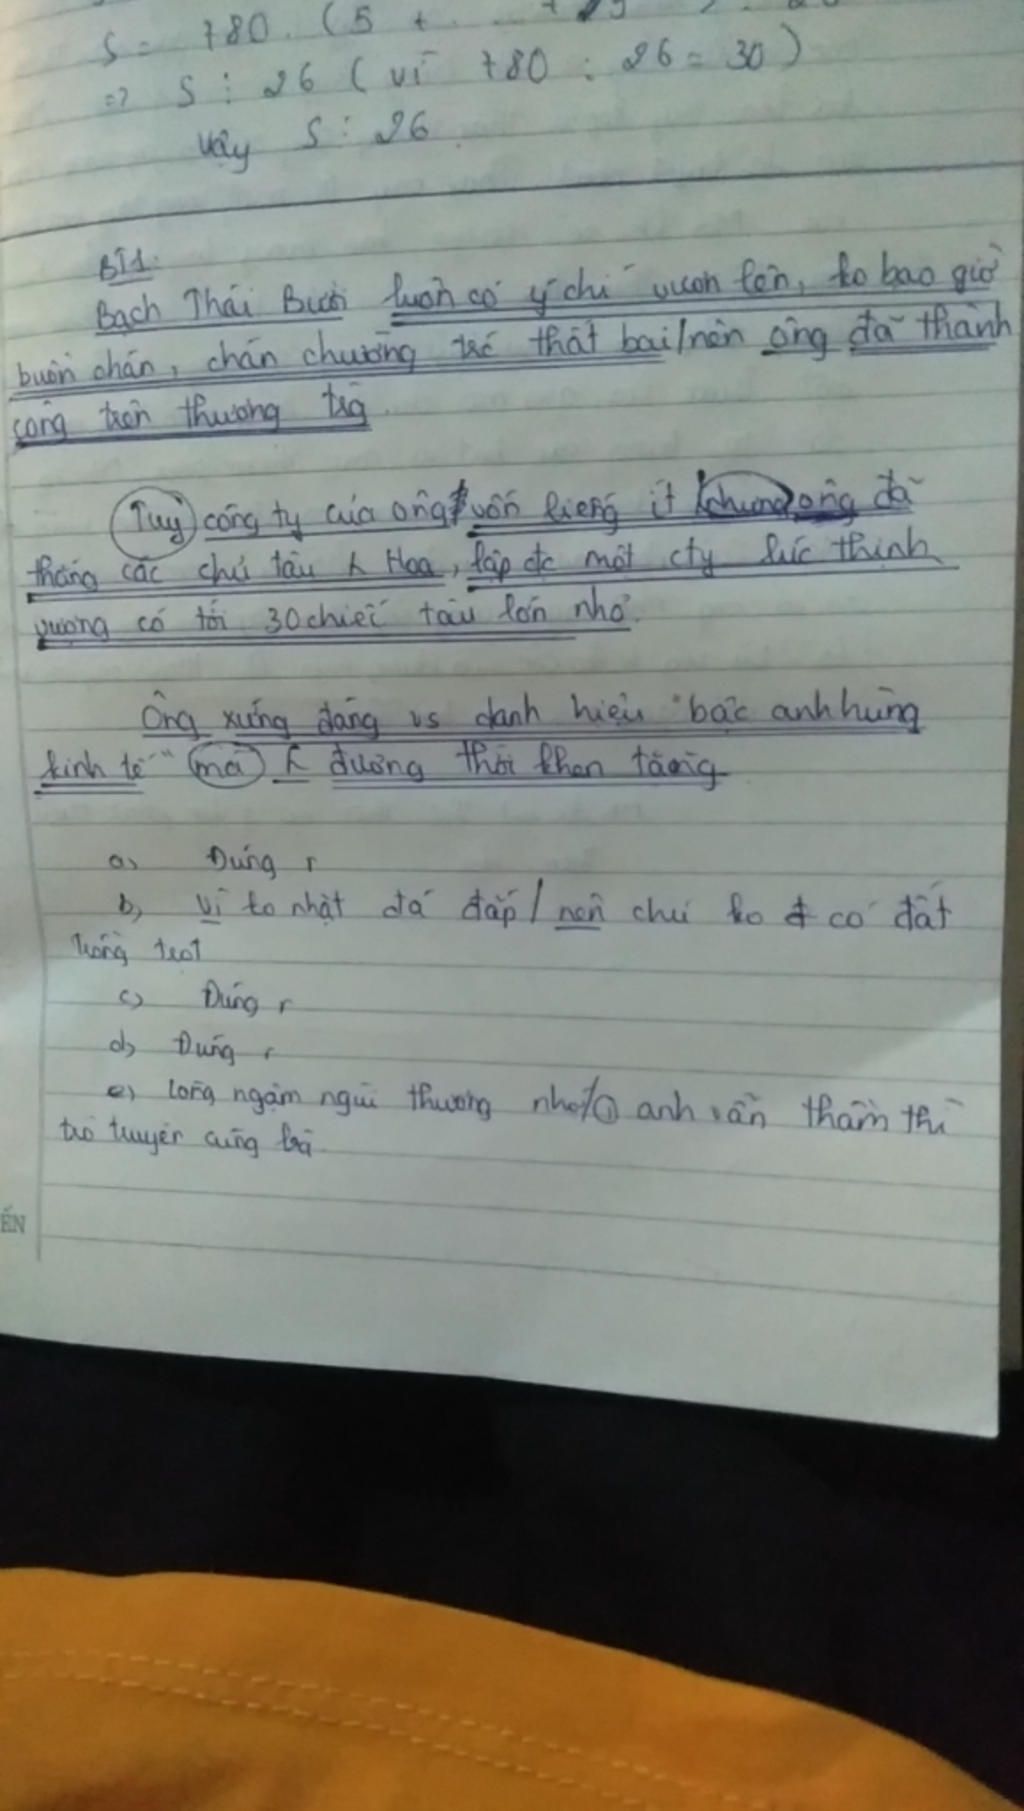 S = 780. (5 + . . +
=> S ⋮ 26 ( vì 780 : 26 = 30 )
vậy S ⋮ 26
BT1:
Bạch Thái Bưởi luôn có ý chí vươn lên, ko bao giờ
buồn chán, chán chường trc thất bại / nên ông đã thành
công trên thương trg
Tuy công ty của ông vốn liếng ít / nhưng ông đã
thắng các chủ tàu ng Hoa, lập đc một cty lúc thịnh
vượng có tới 30 chiếc tàu lớn nhỏ.
Ông xứng đáng vs danh hiệu "bậc anh hùng
kinh tế" mà ng đương thời khen tặng
a) Đúng r
b) Vì ko nhặt đá đắp / nên chú ko có đất
trồng trọt
c) Đúng r
d) Đúng r
e) Lòng ngậm ngùi thương nhớ / anh vẫn thầm thì
trò truyện cùng bà.
ẾN